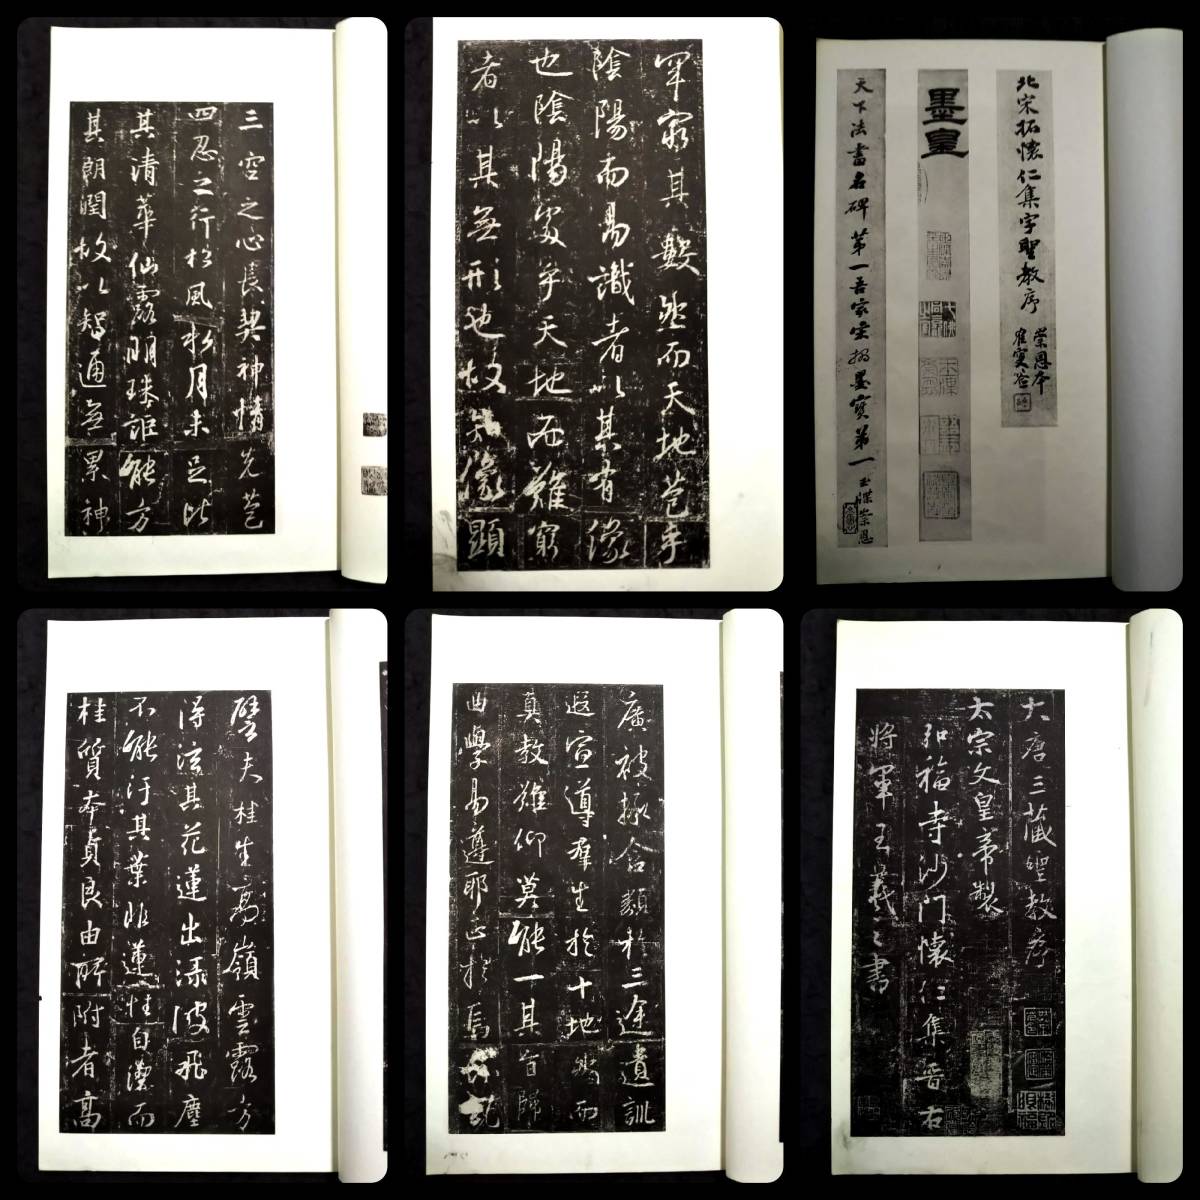 三空之心長契神情先苞
四忍之行松風水月未足比
其清華仙露明珠詎能方
其朗潤故以智通無累神
罕窮其數然而天地苞乎
陰陽而易識者以其有像
也陰陽處乎天地而難窮
者以其無形也故知像顯
北宋拓懷仁集字聖教序
崇恩本
墨皇
天下法書名碑第一吾家宋搨墨寶第一
玉牒崇恩
譬夫桂生高嶺雲露方
得泫其花蓮出淥波飛塵
不能汙其葉非蓮性自潔而
桂質本貞良由所附者高
廣彼拯含類於三途遺訓
遐宣導群生於十地然而
真教難仰莫能一其旨歸
曲學易遵耶正於焉
大唐三藏聖教序
太宗文皇帝製
弘福寺沙門懷仁集晉右
將軍王羲之書